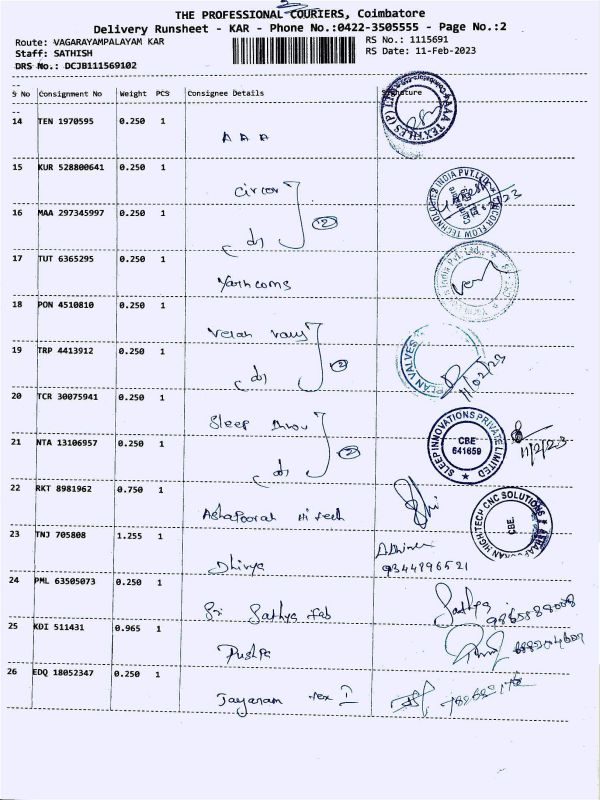 THE PROFESSIONAL COURIERS, Coimbatore
Delivery Runsheet - KAR - Phone No.:0422-3505555 - Page No.:2
Route: VAGARAYAMPALAYAM KAR
RS No.: 1115691
Staff: SATHISH
RS Date: 11-Feb-2023
DRS No.: DCJB111569102
S No Consignment No Weight PCS Consignee Details Signature
14 TEN 1970595 0.250 1
A A A
AAA TEXTILES (P) LTD
15 KUR 528800641 0.250 1
Circor
CIRCOR FLOW TECHNOLOGIES INDIA PVT.LTD
16 MAA 297345997 0.250 1
(2)
17 TUT 6365295 0.250 1
Yarncoms
India Pvt. Ltd.
18 PON 4510810 0.250 1
19 TRP 4413912 0.250 1
(2)
VALVES
11/02/23
20 TCR 30075941 0.250 1
Sleep
21 NTA 13106957 0.250 1
(2)
SLEEP INNOVATIONS PRIVATE LIMITED
CBE
641659
11/2/23
22 RKT 8981962 0.750 1
Ashapoorah Hi tech
HIGHTECH CNC SOLUTIONS
CBE.
23 TNJ 705808 1.255 1
Dhivya
9344896521
24 PML 63505073 0.250 1
Sri Sathya Fab
Sathya
25 KDI 511431 0.965 1
Pushpa
26 EDQ 18052347 0.250 1
Jayaram Tex I